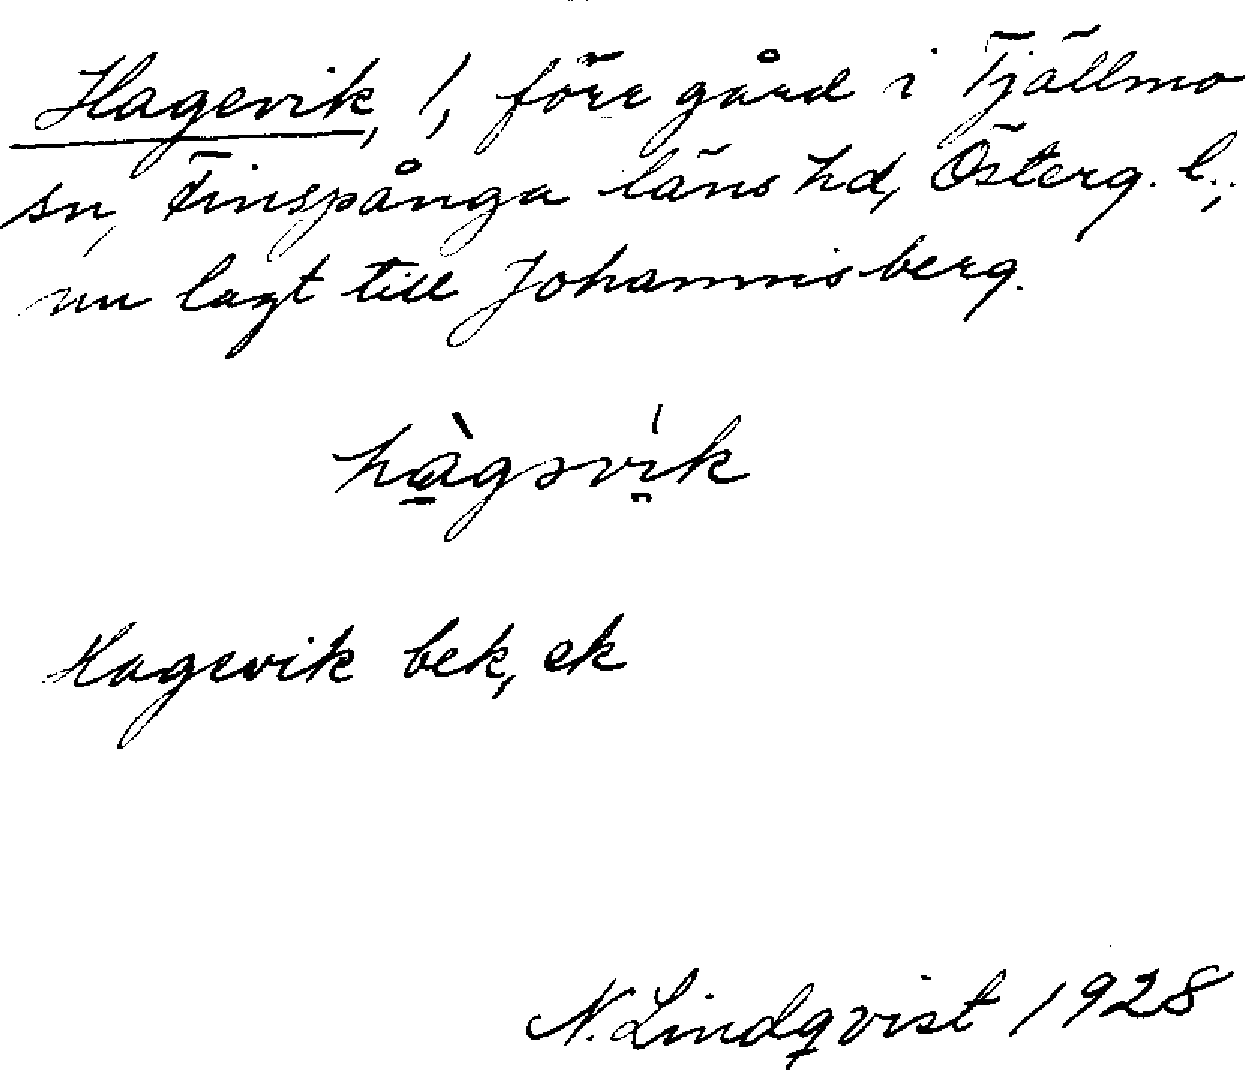 Hagevik, 1, förr gård i Tjällmo
sn, Finspånga läns hd, Österg. l.;
nu lagt till Johannisberg.
hàgəvík
Hagevik bek, ek
N. Lindqvist 1928